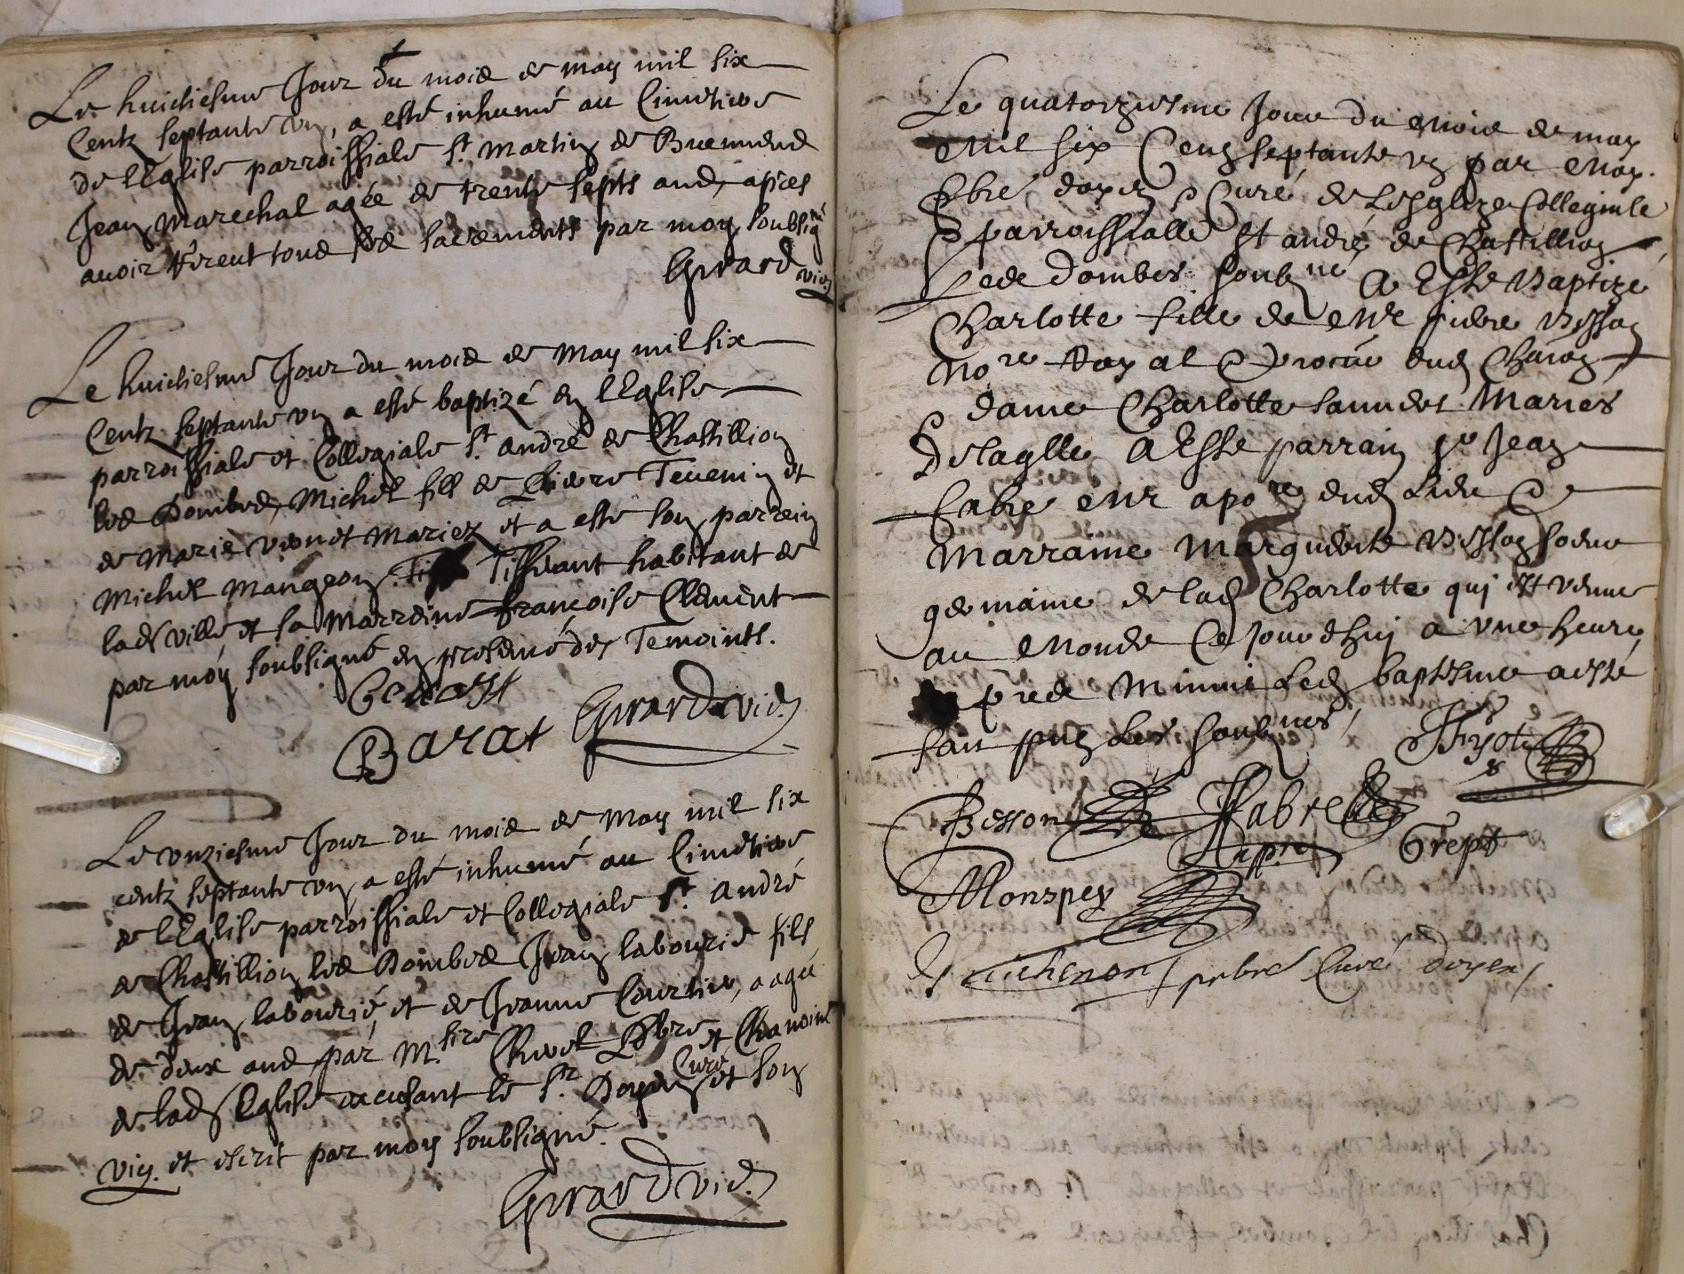 Le huictiesme Jour du mois de may mil six
Centz septante un, a esté inhumé au Cimetiere
de l'Eglise parroissiale St. Martin de Buenend
Jean Marechal agée de trente septs ans, apres
avoir receut tous ses sacrements par moy soubsigné
Girard vic.
Le huictiesme Jour du mois de May mil six
Centz septante un a esté baptizé en l'Eglise
parroissiale et Collegiale St. andré de Chastillion
les Dombes, Michel fils de Tevenin et
de Marie vionet Mariez et a esté son parrein
Michel Mangeon Tisserant habitant de
lad. ville, et sa Marreine Françoise Clement
par moy soubsigné en presence des Temoints.
Barat Girard vic.
Le unziesme Jour du mois de May mil six
centz septante un, a esté inhumé au Cimetiere
de l'Eglise parroissiale et Collegiale St. André
de Chastillion les Dombes Jean labourié fils
de Jean labourié et de Jeanne Courtier, aagé
de deux ans, par M.sire Pbre et Chanoine
de lad. Eglise le Sr. Doyen Curé et son
vic. et escrit par moy soubsigné.
Girard vic.
Le quatorziesme Jour du Mois de may
Mil six Cens septante un par Moy
pbre, doyen & Curé de L'esglize Collegiale
& parroissialle St andré de Chastillion
Les Dombes soubné A Este Baptize
Charlotte fille de Mr Besson
Nore Royal & Procur dud
& dame Charlotte Mariés
Delaqlle A Este parrain Sr Jean
Fabre Mr apore dud Lieu &
Marraine Marguerite Besson soeur
germaine de lad Charlotte qui est venue
au Monde Ce Jourdhuy a une heure
pres Minuit Led baptesme a esté
fait Les soubnés
Fyot
Besson JFabre
apre Crept
Monspey
Guichenon pbre Curé doyen